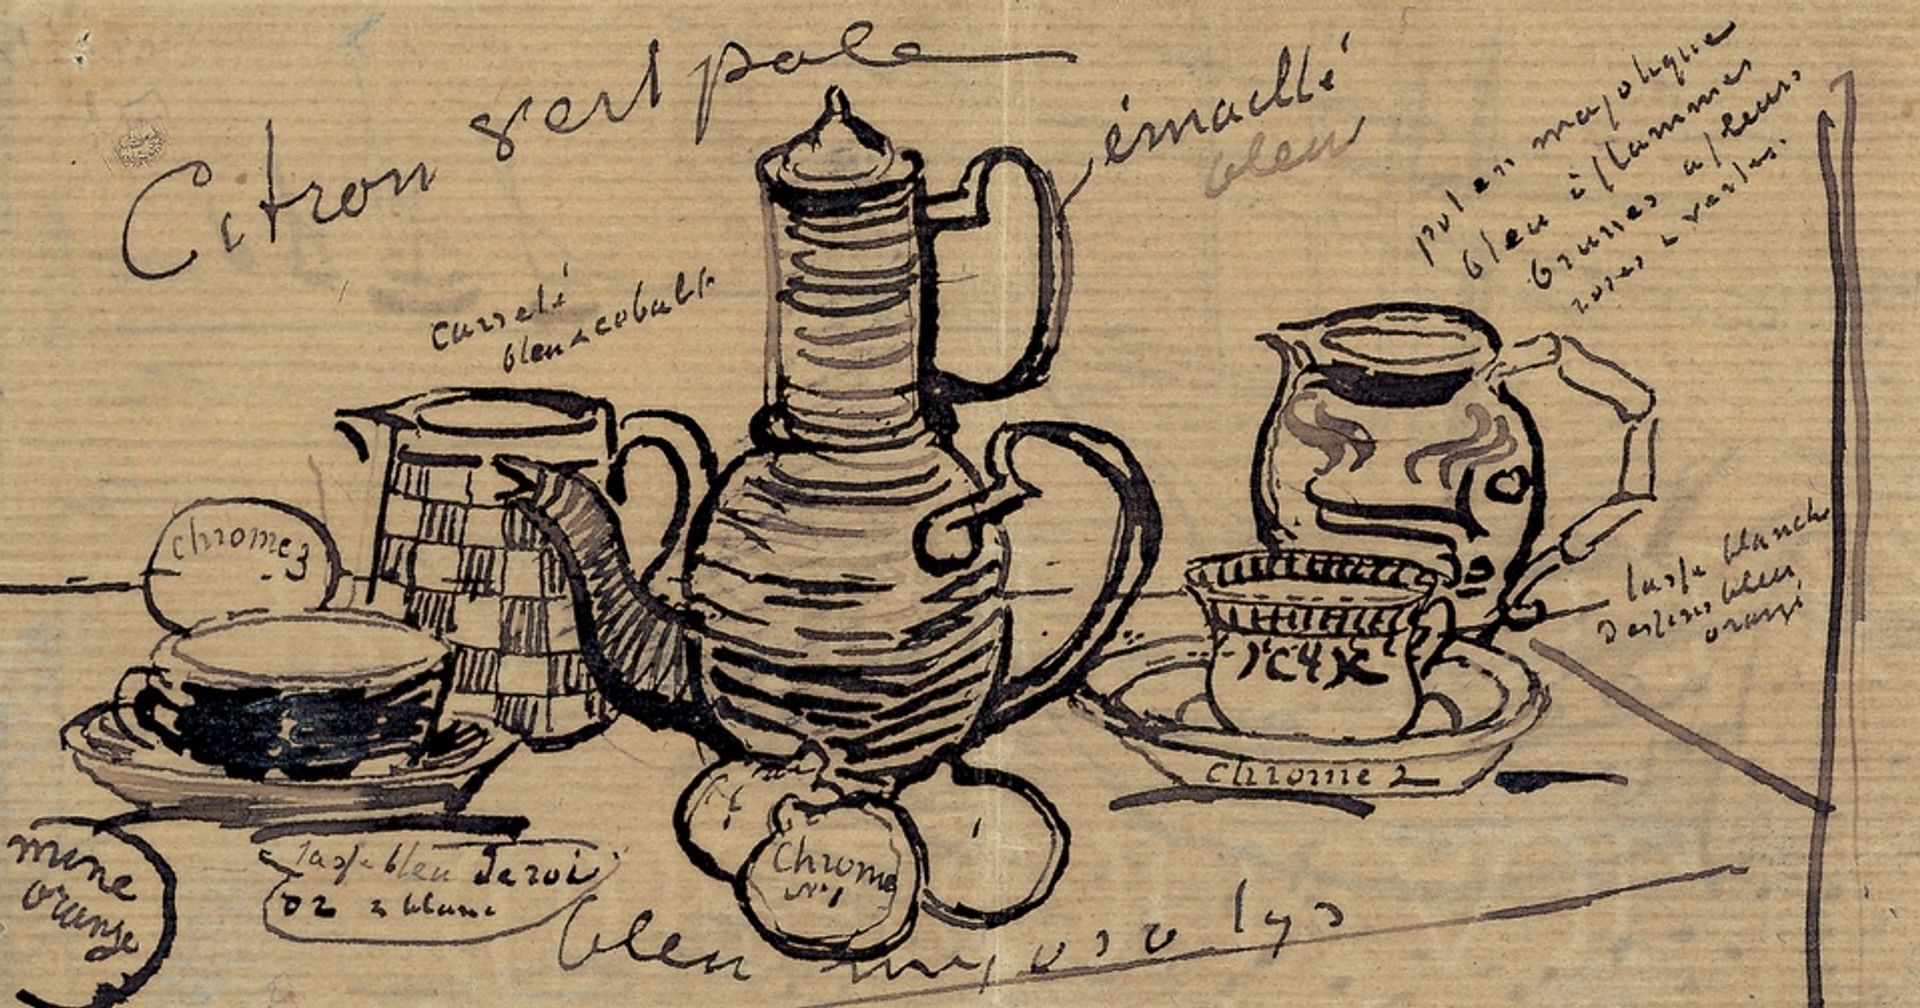 Citron vert pale
émaillé
bleu
pot en majolique
bleu à flammes
brunes à fleurs
roses & vertes.
carrelé
bleu de cobalt
chrome 3
tasse blanche
dessins bleu
orangé
chrome 2
mine
orange
tasse bleu de roi
or & blanc
Chrome
N° 1
bleu myosotys